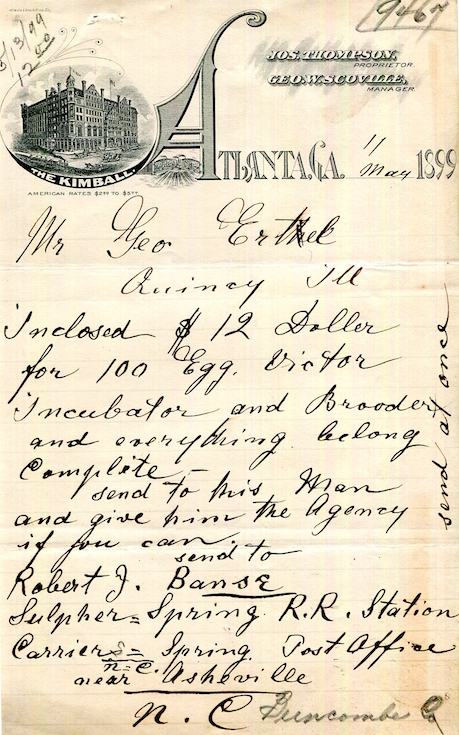 9467
5/13/99
12.00
JOS. THOMPSON,
PROPRIETOR.
GEO. W. SCOVILLE,
MANAGER.
THE KIMBALL.
AMERICAN RATES $2.50 TO $5.00
ATLANTA, GA. 11 May 1899
Mr Geo Erthel
Quincy Ill
Inclosed $ 12 Doller
for 100 Egg. Victor
Incubator and Brooder
and everything belong
Complete -
send to this Man
and give him the Agency
if you can
send to
Robert J. Banse
Sulpher = Spring R.R. Station
Carriers = Spring Post Office
n=C.
near Asheville
N. C Buncombe Co
send at once